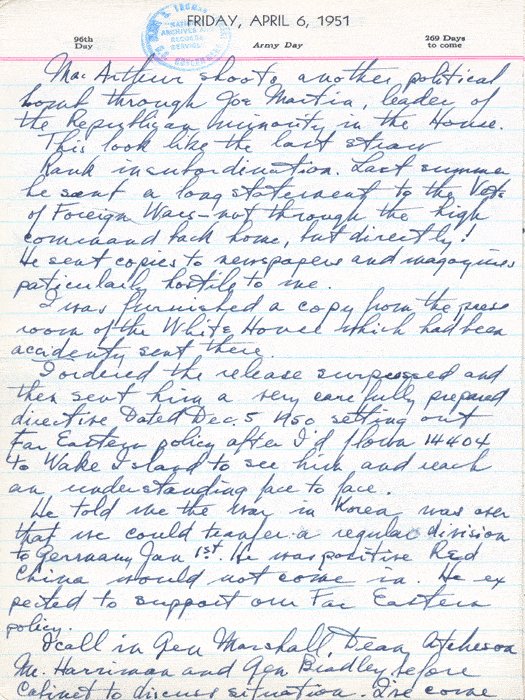 FRIDAY, APRIL 6, 1951
96th
Day
Army Day
269 Days
to come
NATIONAL
ARCHIVES AND
RECORDS
SERVICE
MacArthur shoots another political
bomb through Joe Martin, leader of
the Republican minority in the House.
This look like the last straw
Rank insubordination. Last summer
he sent a long statement to the Vets
of Foreign Wars—not through the high
command back home, but directly!
He sent copies to newspapers and magazines
particularly hostile to me.
I was furnished a copy from the press
room of the White House which had been
accidently sent there.
I ordered the release surpressed and
then sent him a very carefully prepared
directive Dated Dec. 5 1950 setting out
Far Eastern policy after I'd flown 14404
to Wake Island to see him and reach
an understanding face to face.
He told me the war in Korea was over
that we could transfer a regular division
to Germany Jan 1st. He was positive Red
China would not come in. He ex
pected to support our Far Eastern
policy.
I call in Gen Marshall, Dean Atcheson
Mr. Harriman and Gen. Bradley before
Cabinet to discuss situation. I've come